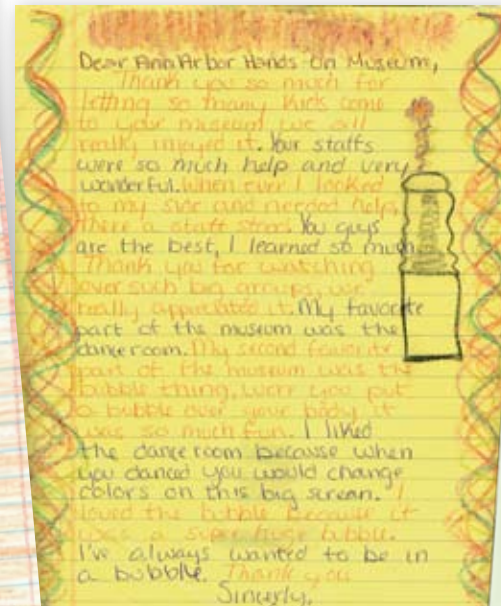 Dear Ann Arbor Hands-On Museum,
Thank you so much for
letting so many kids come
to your museum we all
really injoyed it. Your staffs
were so much help and very
wonderful. When ever I looked
to my side and needed help,
there a staff stood. You guys
are the best, I learned so much.
Thank you for watching
over such big groups, we
really appreciated it. My favorite
part of the museum was the
dance room. My second favorite
part of the museum was the
bubble thing, were you put
a bubble over your body it
was so much fun. I liked
the dance room because when
you danced you would change
colors on this big screan. I
loved the bubble because it
was a super huge bubble.
I've always wanted to be in
a bubble. Thank you
Sincerly,